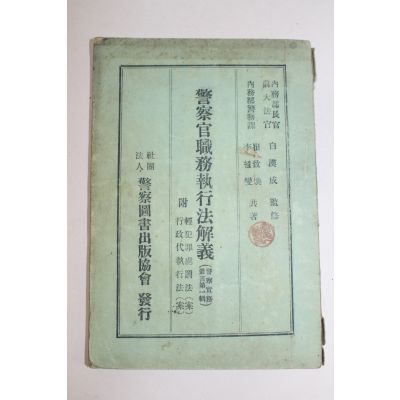 內務部長官
前大法官
白漢成 監修
內務部警務課
共著
警察官職務執行法解義
(警察實務
叢書第一輯)
附
輕犯罪處罰法(案)
行政代執行法(案)
社團
法人 警察圖書出版協會 發行